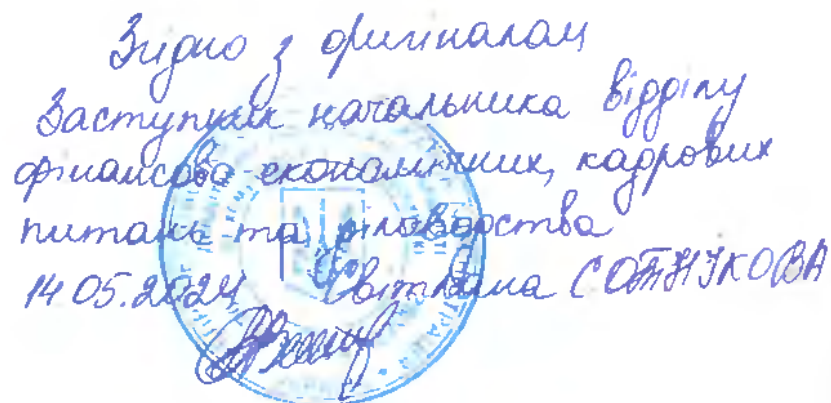 Згідно з оригіналом
Заступник начальника відділу
фінансово економічних, кадрових
питань та діловодства
14.05.2024 Світлана СОТНІКОВА